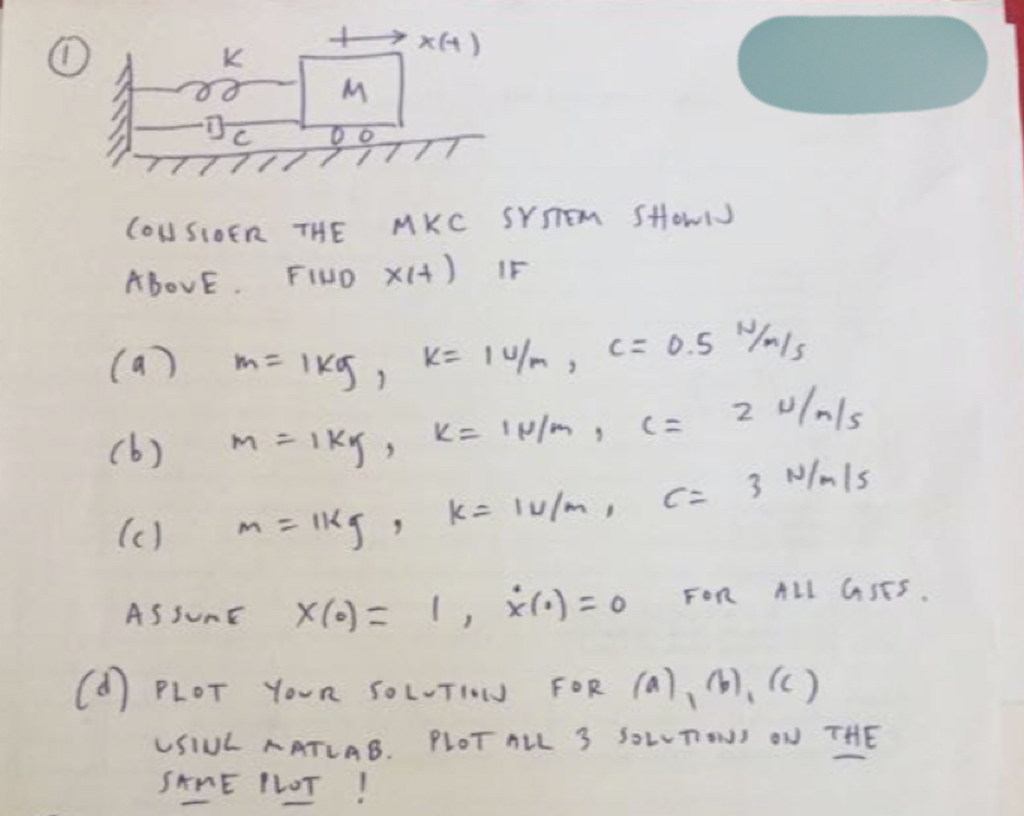 1
x(t)
K
M
C
CONSIDER THE MKC SYSTEM SHOWN
ABOVE. FIND x(t) IF
(a) m = 1kg, K = 1 N/m, C = 0.5 N/m/s
(b) m = 1Kg, K = 1N/m, C = 2 N/m/s
(c) m = 1Kg, k = 1N/m, C = 3 N/m/s
ASSUME X(0) = 1, ẋ(0) = 0 FOR ALL CASES.
(d) PLOT YOUR SOLUTION FOR (a), (b), (c)
USING MATLAB. PLOT ALL 3 SOLUTIONS ON THE
SAME PLOT !